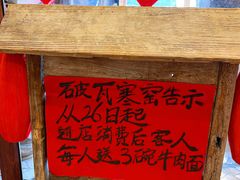 破瓦寒窑告示
从26日起
进店消费后客人
每人送3碗牛肉面